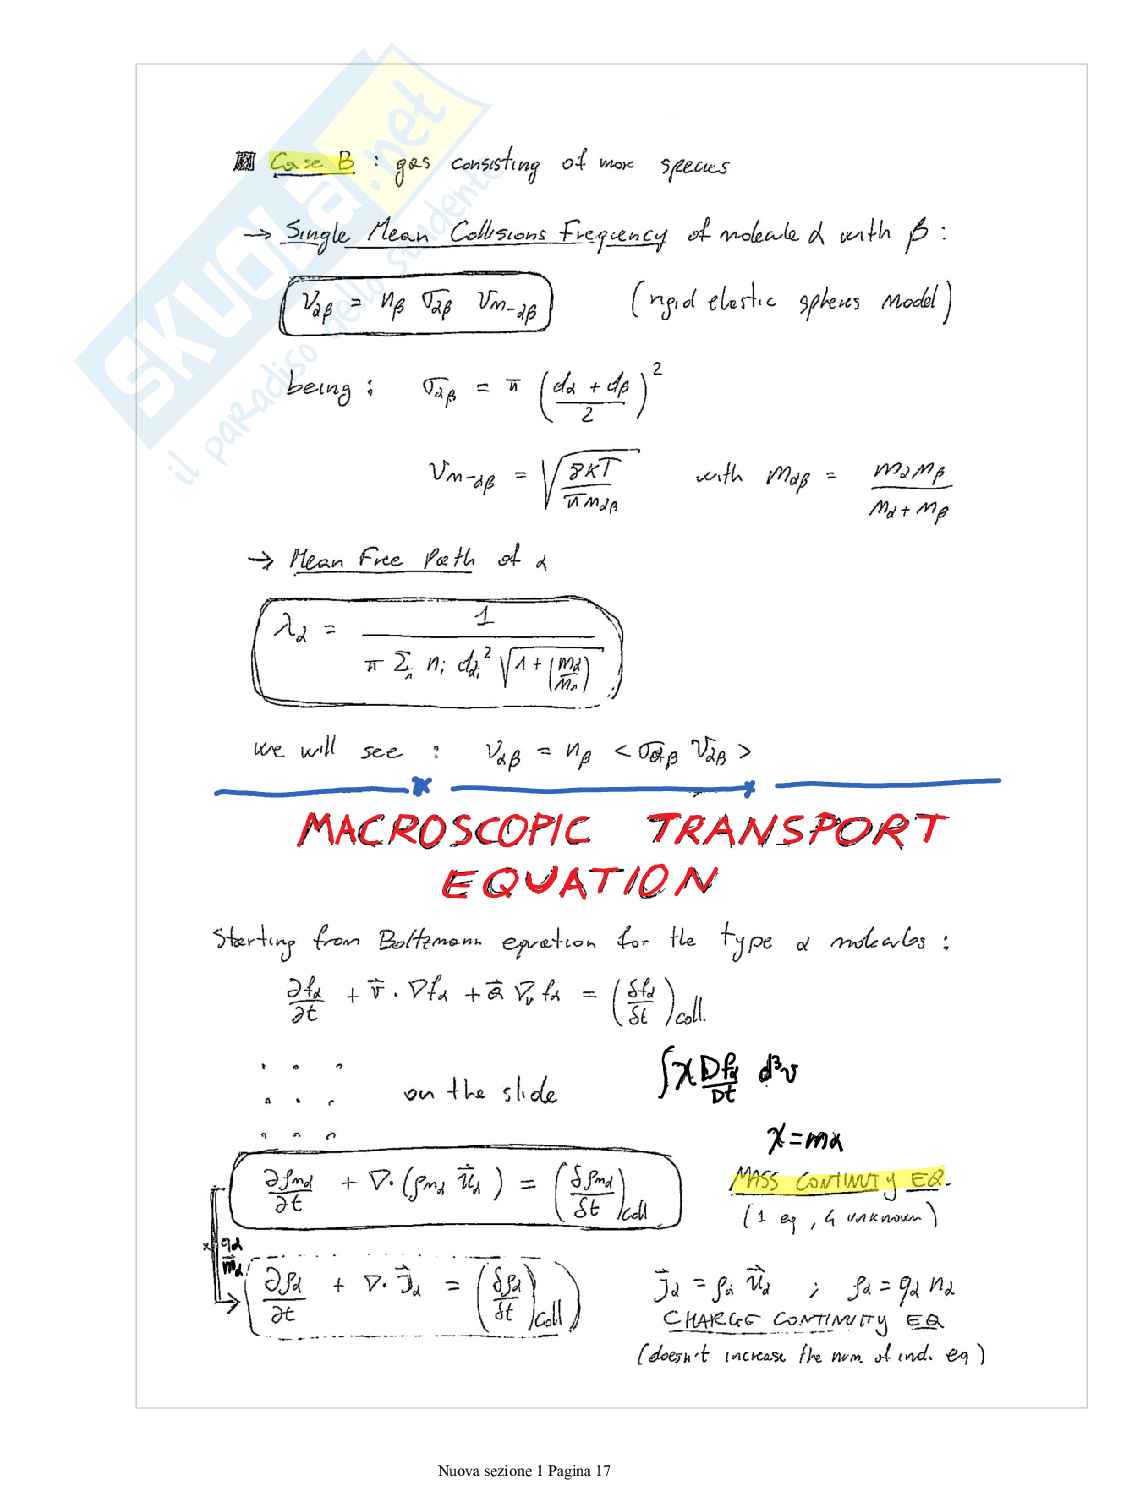 Case B : gas consisting of more species
→ Single Mean Collisions Frequency of molecule α with β :
ν_αβ = n_β σ_αβ v_m-αβ (rigid elastic spheres model)
being : σ_αβ = π ( (d_α + d_β) / 2 )^2
v_m-αβ = √( 8KT / (π m_αβ) ) with m_αβ = m_α m_β / (m_α + m_β)
→ Mean Free Path of α
λ_α = 1 / ( π Σ_i n_i d_αi^2 √( 1 + (m_α / m_i) ) )
we will see : ν_αβ = n_β < σ_αβ v_αβ >
MACROSCOPIC TRANSPORT
EQUATION
Starting from Boltzmann equation for the type α molecules :
∂f_α/∂t + v⃗ · ∇f_α + a⃗ ∇_v f_α = ( δf_α/δt )_coll.
on the slide ∫ χ Df_α/Dt d³v
χ = m_α
∂ρ_mα/∂t + ∇·(ρ_mα u⃗_α) = ( δρ_mα/δt )_coll MASS CONTINUITY EQ.
(1 eq, 4 unknown)
x q_α/m_α
∂ρ_α/∂t + ∇· J⃗_α = ( δρ_α/δt )_coll J⃗_α = ρ_α u⃗_α ; ρ_α = q_α n_α
CHARGE CONTINUITY EQ
(doesn't increase the num. of ind. eq)
SKUOLA.net
il paradiso dello studente
Nuova sezione 1 Pagina 17